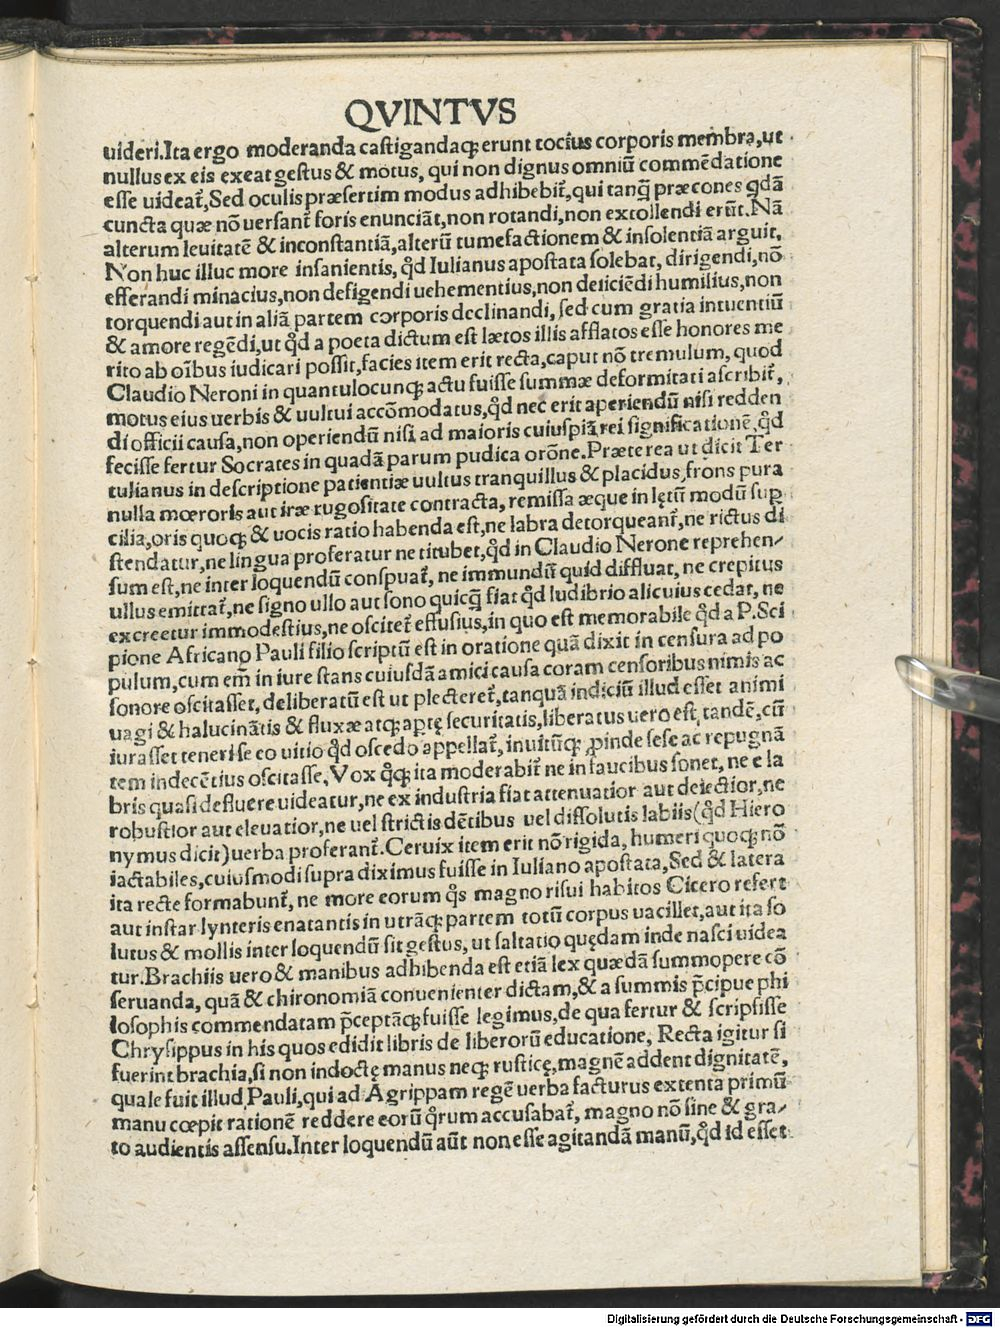 QVINTVS
uideri.Ita ergo moderanda castigandaq; erunt tocius corporis membra,ut
nullus ex eis exeat gestus & motus, qui non dignus omniū commēdatione
esse uideat̃,Sed oculis præsertim modus adhibebit̃,qui tanq̃ præcones q̃dā
cuncta quæ nō uersant̃ foris enunciāt,non rotandi,non extollendi erūt.Nā
alterum leuitatē & inconstantiā,alterū tumefactionem & insolentiā arguit,
Non huc illuc more insanientis, q̃d Iulianus apostata solebat, dirigendi,nō
efferandi minacius,non defigendi uehementius,non deiiciēdi humilius,non
torquendi aut in aliā partem corporis declinandi, sed cum gratia intuentiū
& amore regēdi,ut q̃d a poeta dictum est lætos illis afflatos esse honores me
rito ab oībus iudicari possit,facies item erit recta,caput nō tremulum, quod
Claudio Neroni in quantulocunq; actu fuisse summæ deformitati ascribit̃,
motus eius uerbis & uultui accōmodatus,q̃d nec erit aperiendū nisi redden
di officii causa,non operiendū nisi ad maioris cuiuspiā rei significationē,q̃d
fecisse fertur Socrates in quadā parum pudica orōne.Præterea ut dicit Ter
tulianus in descriptione patientiæ uultus tranquillus & placidus,frons pura
nulla mœroris aut iræ rugositate contracta, remissa æque in lętū modū sup
cilia,oris quoq; & uocis ratio habenda est,ne labra detorqueant̃,ne rictus di
stendatur,ne lingua proferatur ne titubet,q̃d in Claudio Nerone reprehen/
sum est,ne inter loquendū conspuat̃, ne immundū quid diffluat, ne crepitus
ullus emittat̃,ne signo ullo aut sono quicq̃ fiat q̃d ludibrio alicuius cedat, ne
excreetur immodestius,ne oscitet̃ effusius,in quo est memorabile q̃d a P.Sci
pione Africano Pauli filio scriptū est in oratione quā dixit in censura ad po
pulum,cum em̃ in iure stans cuiusdā amici causa coram censoribus nimis ac
sonore oscitasset, deliberatū est ut plecteret̃,tanquā indiciū illud esset animi
uagi & halucinātis & fluxæ atq; aptę securitatis,liberatus uero est, tandē,cū
iurasset teneri se eo uitio q̃d oscedo appellat̃, inuitūq; ꝓinde sese ac repugnā
tem indecētius oscitasse, Vox q̃q; ita moderabit̃ ne in faucibus sonet, ne e la
bris quasi defluere uideatur,ne ex industria fiat attenuatior aut deiectior,ne
robustior aut eleuatior,ne uel strictis dētibus uel dissolutis labiis(q̃d Hiero
nymus dicit)uerba proferant̃.Ceruix item erit nō rigida, humeri quoq; nō
iactabiles,cuiusmodi supra diximus fuisse in Iuliano apostata,Sed & latera
ita recte formabunt̃, ne more eorum q̃s magno risui habitos Cicero refert
aut instar lynteris enatantis in utrāq; partem totū corpus uacillet,aut ita so
lutus & mollis inter loquendū sit gestus, ut saltatio quędam inde nasci uidea
tur.Brachiis uero & manibus adhibenda est etiā lex quædā summopere cō
seruanda, quā & chironomiā conuenienter dictam,& a summis p̄cipue phi
losophis commendatam p̄ceptāq; fuisse legimus,de qua fertur & scripsisse
Chrysippus in his quos edidit libris de liberorū educatione, Recta igitur si
fuerint brachia,si non indoctę manus neq; rusticę,magnē addent dignitatē,
quale fuit illud Pauli,qui ad Agrippam regē uerba facturus extenta primū
manu cœpit rationē reddere eorū q̃rum accusabat̃, magno nō sine & gra/
to audientis assensu.Inter loquendū aūt non esse agitandā manū,q̃d id esset
Digitalisierung gefördert durch die Deutsche Forschungsgemeinschaft - DFG